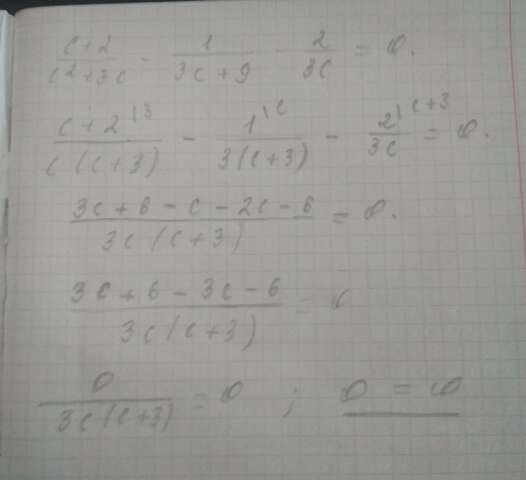 (c+2)/(c²+3c) - 1/(3c+9) - 2/(3c) = 0.
(c+2^{\3})/(c(c+3)) - 1^{\c}/(3(c+3)) - 2^{\c+3}/(3c) = 0.
(3c+6-c-2c-6)/(3c(c+3)) = 0.
(3c+6-3c-6)/(3c(c+3)) = 0
0/(3c(c+3)) = 0 ; 0 = 0